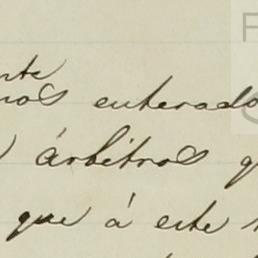 nte
nos enterado
árbitros q
que á este